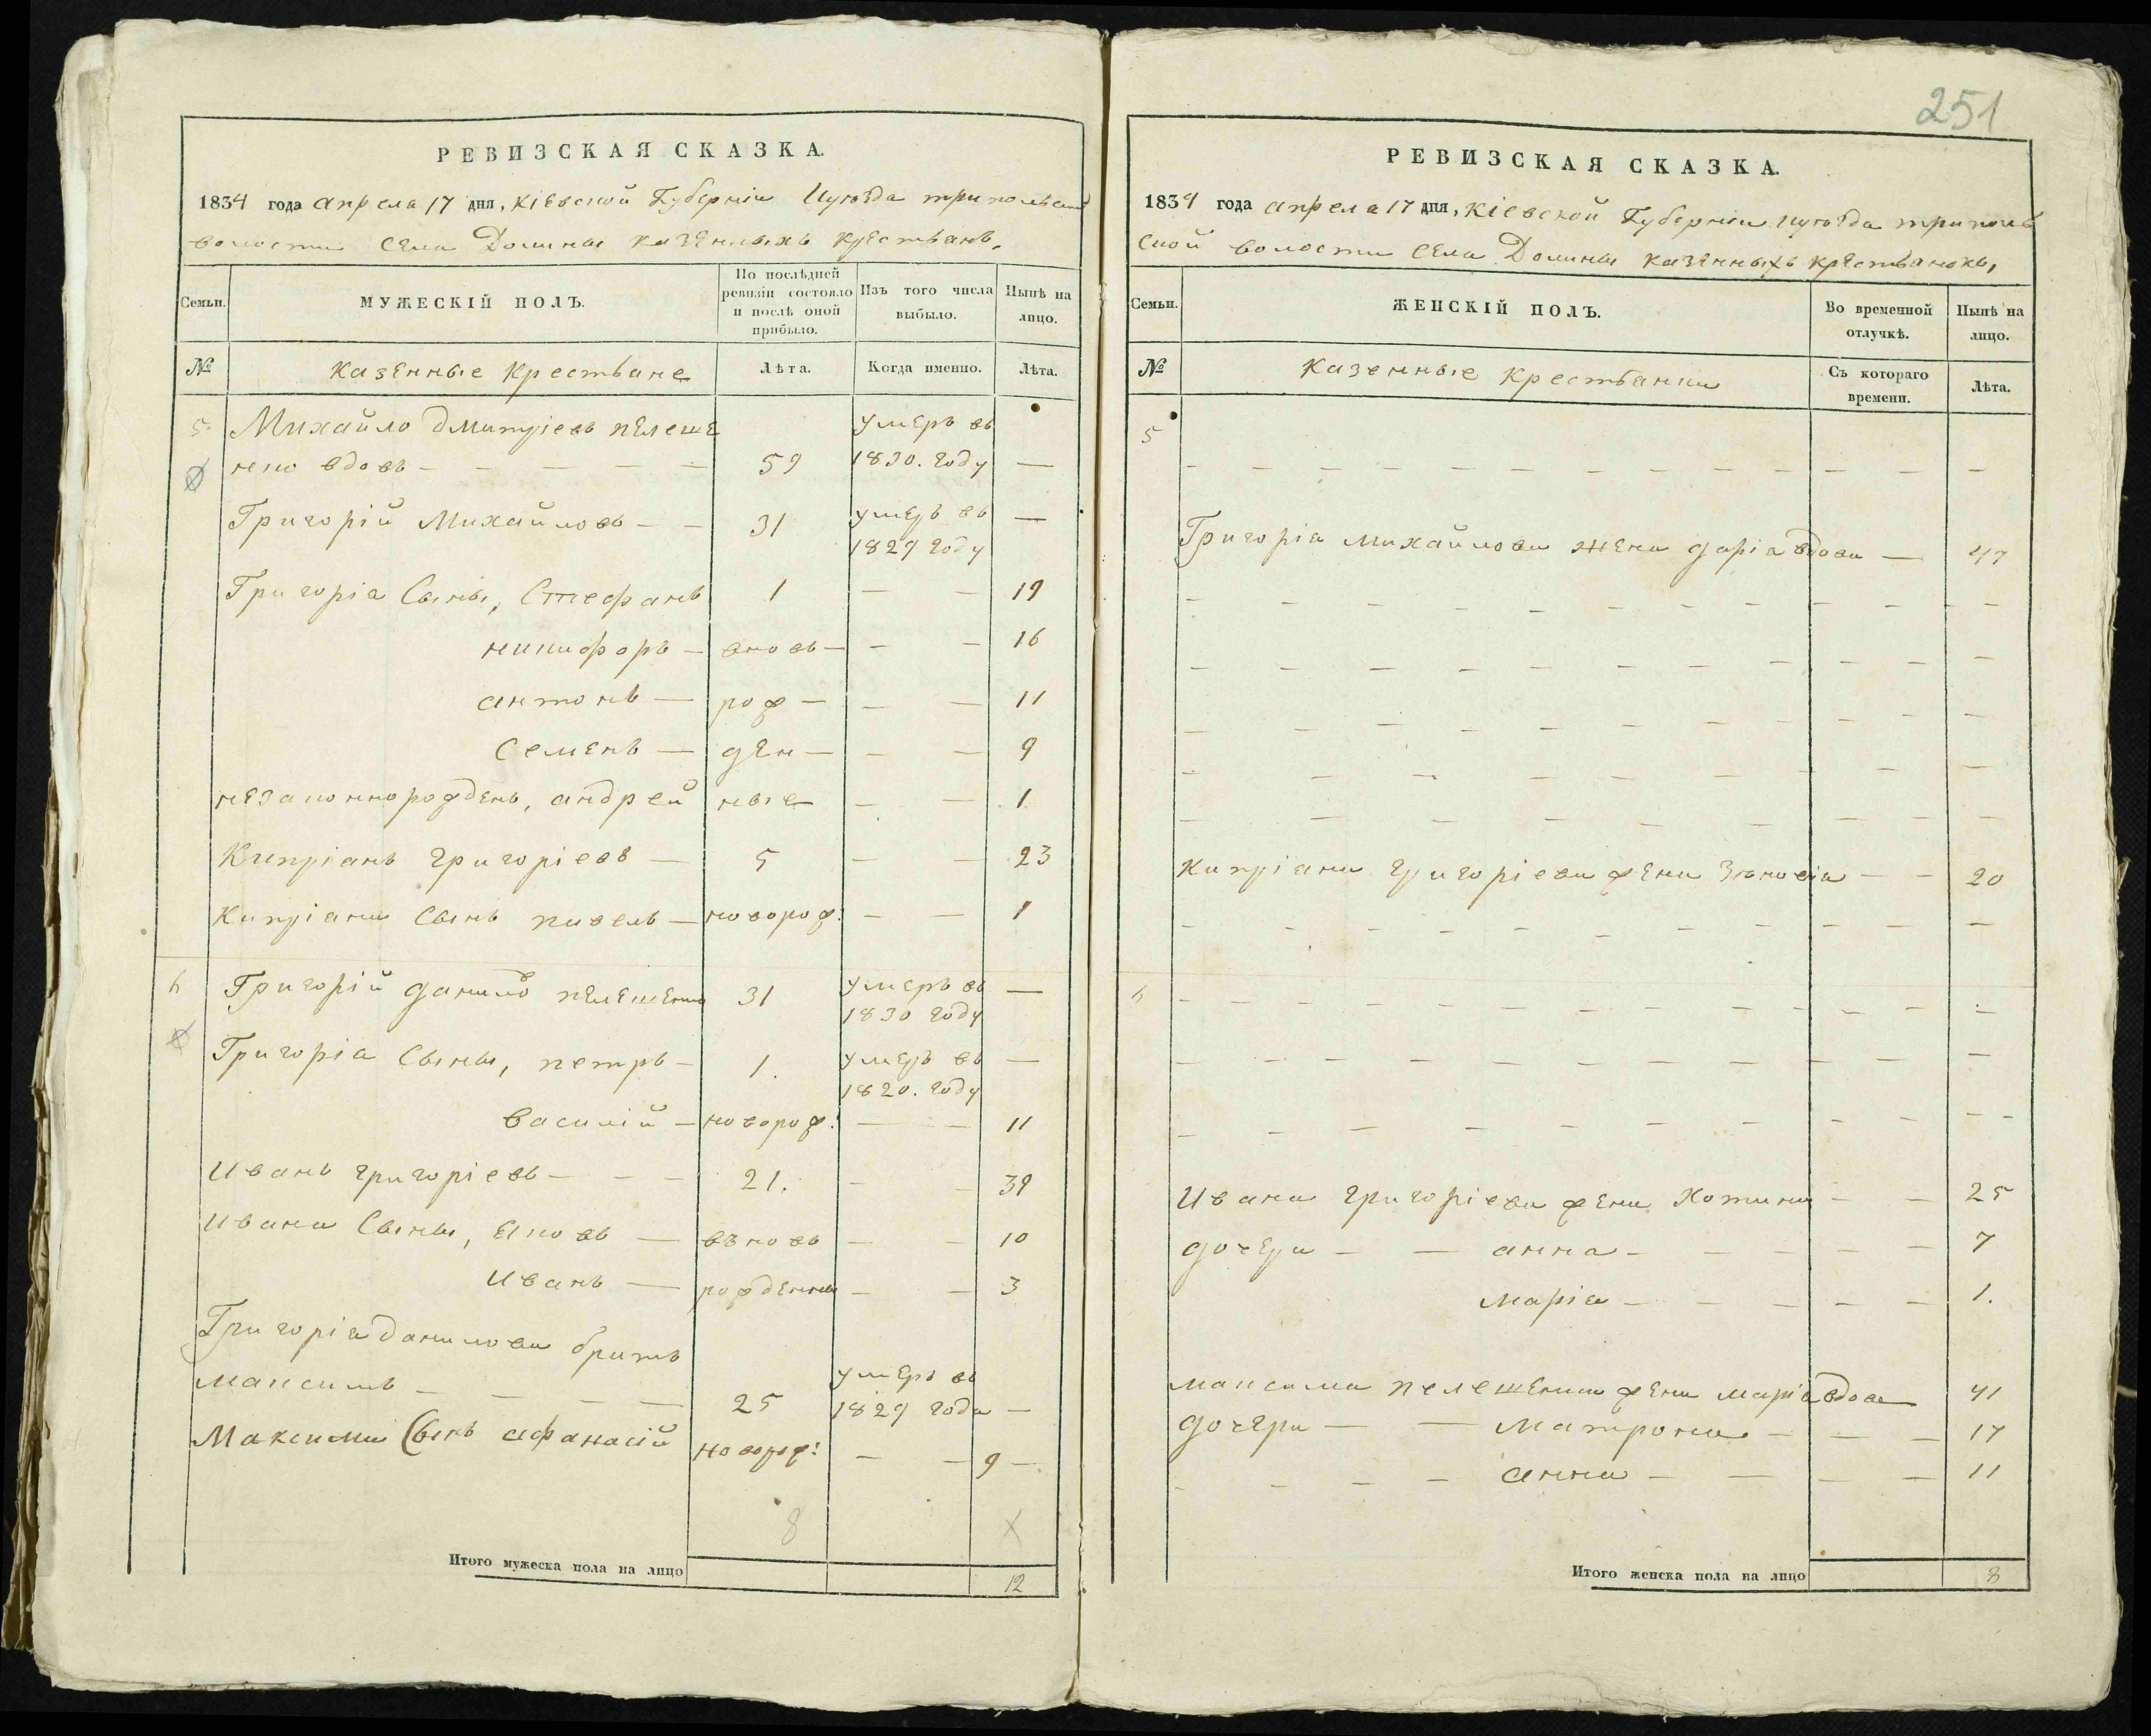 РЕВИЗСКАЯ СКАЗКА.
1834 года апрела 17 дня, Кіевской Губерніи Иуѣзда трипольской
волости села Долины казенныхъ крестьянъ.
Семьи.
МУЖЕСКІЙ ПОЛЪ.
По послѣдней ревизіи состояло и послѣ оной прибыло.
Изъ того числа выбыло.
Нынѣ на лицо.
№
Казенные Крестьяне
Лѣта.
Когда именно.
Лѣта.
5 Михайло Дмитріевъ пелеше умеръ въ
нко вдовъ — — — — — 59 1830. году —
Григорій Михайловъ — — 31 умеръ въ —
1829 году
Григоріа Сыны, Стефанъ 1 — — 19
никифоръ — вновь — — — 16
антонъ — рож — — — 11
Семенъ — ден — — — 9
незаконнорожденъ, андрей ные — — 1
Кипріанъ Григоріевъ — 5 — — 23
Кипріана Сынъ павелъ — новорож: — — 1
6 Григорій данилов пелешенко 31 умеръ въ —
1830 году
Григоріа Сыны, петръ — 1. умеръ въ —
1820. году
Василій — новорож: — — 11
Иванъ григоріевъ — — — 21. — — 39
Ивана Сыны, Яковъ — вновь — — 10
Иванъ — рожденны — — 3
Григоріа данилова братъ
максимъ — — — — 25 умеръ въ
1829 года —
Максима Сынъ афанасій новорож: — — 9 —
8
Итого мужеска пола на лицо 12
251
РЕВИЗСКАЯ СКАЗКА.
1834 года апрела 17 дня, Кіевской Губерніи Иуѣзда триполь
ской волости села Долины казенныхъ крестьянокъ,
Семьи.
ЖЕНСКІЙ ПОЛЪ.
Во временной отлучкѣ.
Нынѣ на лицо.
№
Казенные Крестьянки
Съ котораго времени.
Лѣта.
5
Григоріа михайлова жена даріа вдова — 47
Кипріана григоріева жена Зѣновіа — — 20
6
Ивана григоріева жена Хотина — — 25
дочери — — анна — — — — 7
маріа — — — — — 1.
максима пелешенка жена маріа вдова 41
дочери — — матрона — — — 17
анна — — — — 11
Итого женска пола на лицо 8